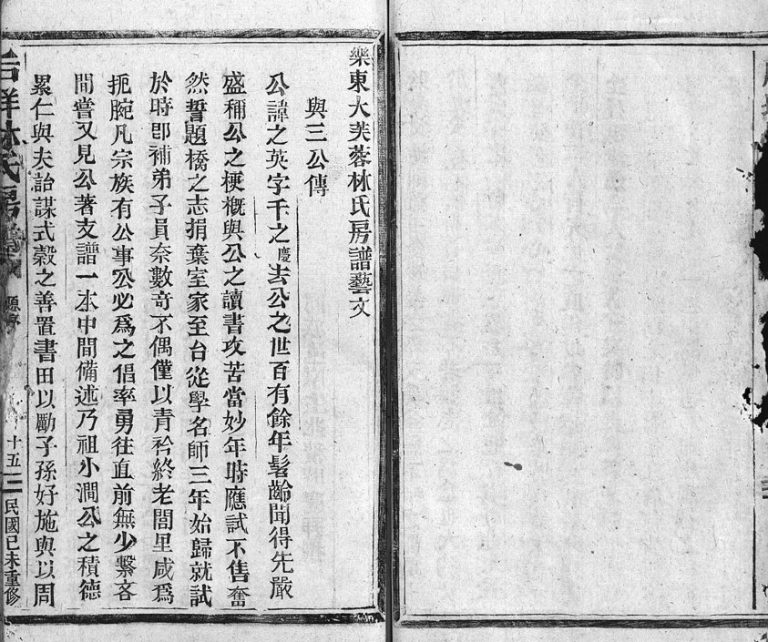 樂東大芙蓉林氏房譜藝文
與三公傳
公諱之英字千之慶去公之世百有餘年髫齡聞得先嚴
盛稱公之梗概與公之讀書攻苦當妙年時應試不售奮
然誓題橋之志捐棄室家至台從學名師三年始歸就試
於時即補弟子員奈數奇不偶僅以青衿終老閭里咸爲
扼腕凡宗族有公事公必爲之倡率勇往直前無少繫吝
間嘗又見公著支譜一本中間備述乃祖小澗公之積德
累仁與夫詒謀式穀之善置書田以勵子孫好施與以周
林氏房譜
十五
民國己未重修